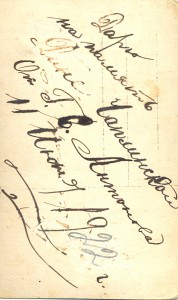 Дарю
на память
Чаплинской
От Г. В. Антонова
11 Июня 1922 г.